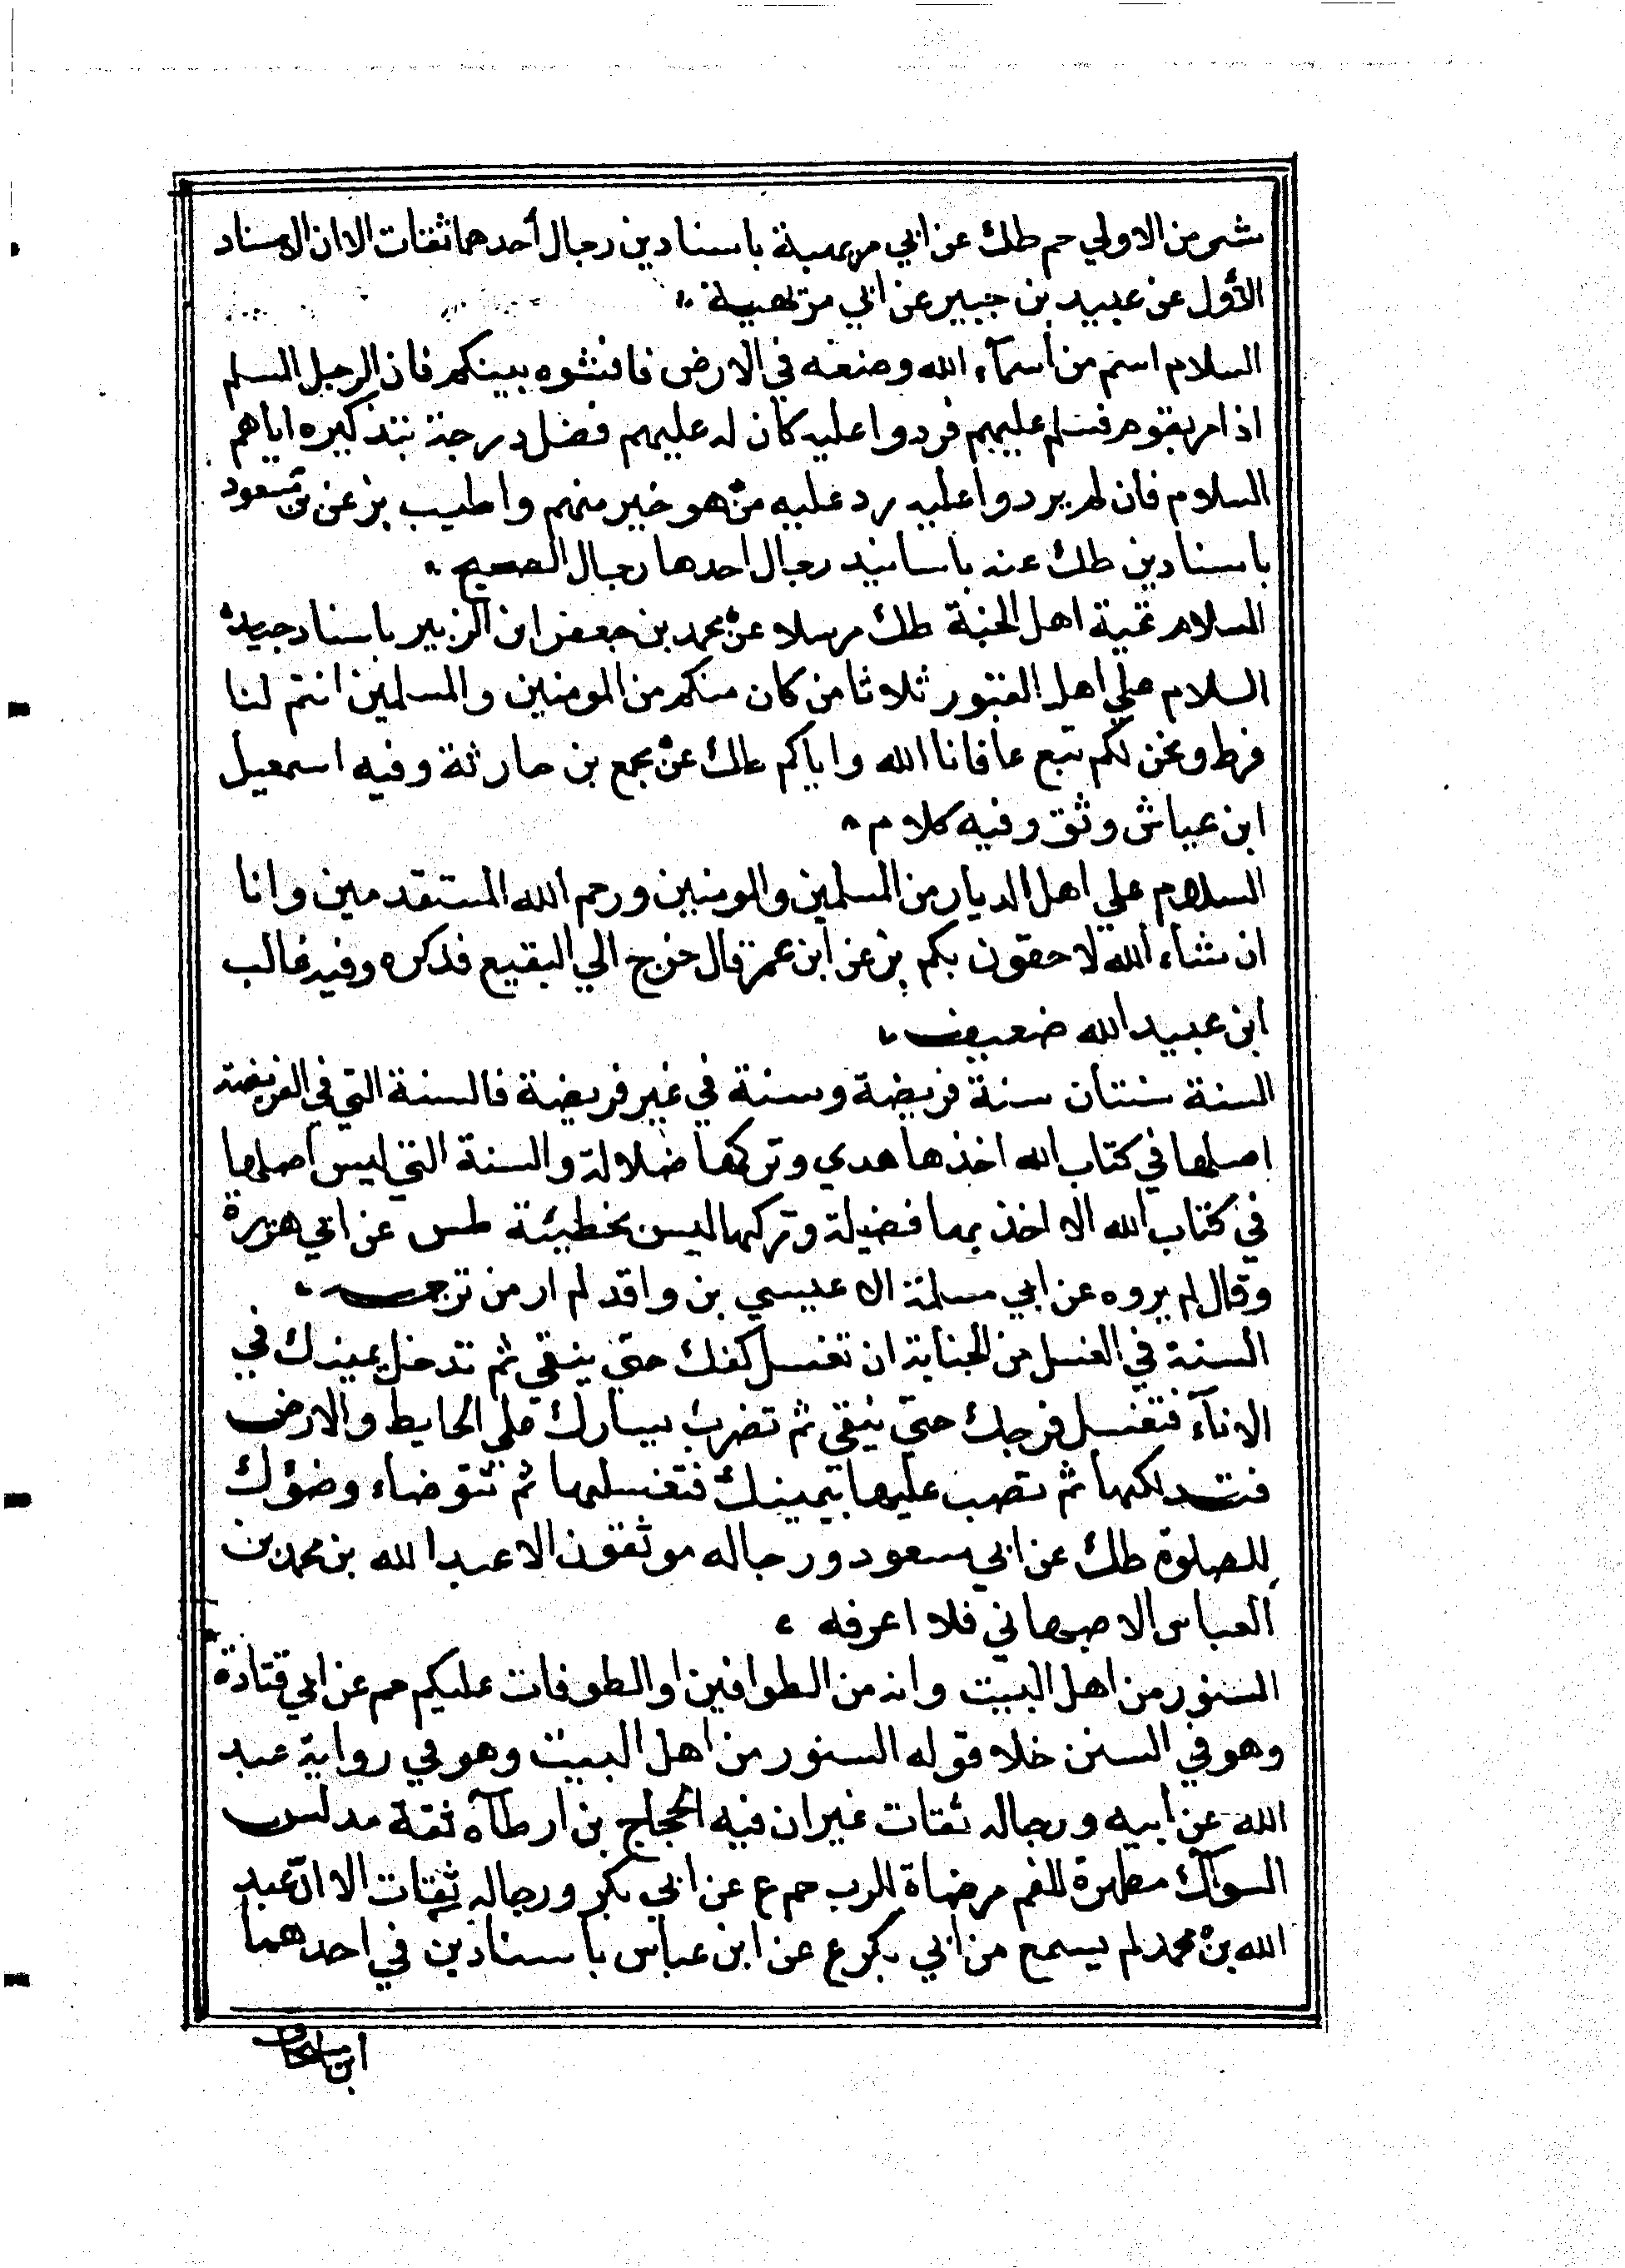 شر من الاولي حم طك عن ابي مويهبة باسنادين رجال أحدهما ثقات الا ان الاسناد
الأول عن عبيد بن جبير عن ابي مويهبة
السلام اسم من أسمآء الله وضعه في الارض فافشوه بينكم فان الرجل المسلم
اذا مر بقوم فسلم عليهم فردوا عليه كان له عليهم فضل درجة بتذكيره اياهم
السلام فان لم يردوا عليه رد عليه من هو خير منهم واطيب بز عن بن مسعود
باسنادين طك عنه باسانيد رجال احدها رجال الصحيح
السلام تحية اهل الجنة طك مرسلا عن محمد بن جعفر ابن الزبير باسناد جيد
السلام علي اهل القبور ثلاثا من كان منكم من المومنين والمسلمين انتم لنا
فرط ونحن لكم تبع عافانا الله واياكم طك عن مجمع بن حارثة وفيه اسمعيل
ابن عياش وثق وفيه كلام
السلام علي اهل الديار من المسلمين والمومنين ورحم الله المستقدمين وانا
ان شاء الله لاحقون بكم بز عن ابن عمر قال خرج الي البقيع فذكره وفيه غالب
ابن عبيد الله ضعيف
السنة سنتان سنة فريضة وسنة في غير فريضة فالسنة التي في الفريضة
اصلها في كتاب الله اخذها هدي وتركها ضلالة والسنة التي ليس اصلها
في كتاب الله الاخذ بها فضيلة وتركها ليس بخطيئة طس عن ابي هريرة
وقال لم يروه عن ابي سلمة الا عيسي بن واقد لم ار من ترجمه
السنة في الغسل من الجنابة ان تغسل كفك حتي ينقي ثم تدخل يمينك في
الانآء فتغسل فرجك حتي ينقي ثم تضرب يسارك علي الحايط والارض
فتدلكها ثم تصب عليها بيمينك فتغسلها ثم تتوضاء وضؤك
للصلوة طك عن ابي مسعود ورجاله موثقون الا عبد الله بن محمد بن
العباس الاصبهاني فلا اعرفه
السنور من اهل البيت وانه من الطوافين او الطوفات عليكم حم عن ابي قتادة
وهو في السنن خلا قوله السنور من اهل البيت وهو في رواية عبد
الله عن ابيه ورجاله ثقات غير ان فيه الحجاج بن ارطآة ثقة مدلس
السواك مطهرة للفم مرضاة للرب حم ع عن ابي بكر ورجاله ثقات الا ان عبد
الله بن محمد لم يسمع من ابي بكر ع عن ابن عباس باسنادين في احدهما